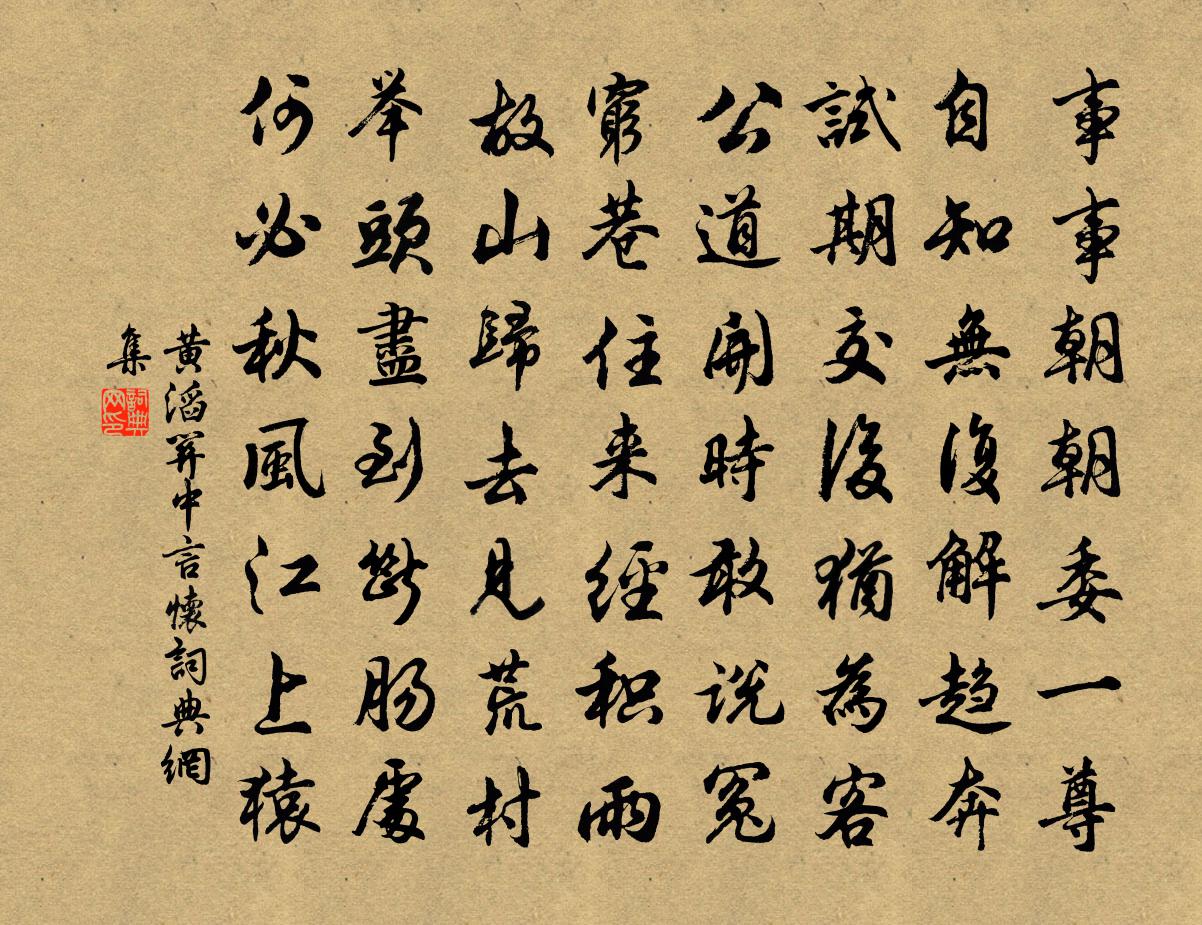 事事朝朝委一尊
自知無復解趋奔
試期交後猶為客
公道開時敢説冤
窮巷住来經积雨
故山歸去見荒村
举頭盡到斷肠處
何必秋風江上猿
黄滔關中言懷詞典網
集
詞典
网印